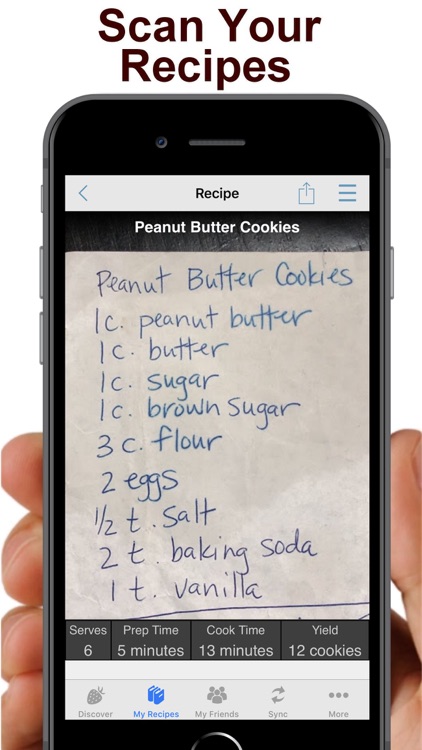 Scan Your
Recipes
Recipe
Peanut Butter Cookies
Peanut Butter Cookies
1 c. peanut butter
1 c. butter
1 c. sugar
1 c. brown sugar
3 c. flour
2 eggs
1/2 t. salt
2 t. baking soda
1 t. vanilla
Serves Prep Time Cook Time Yield
6 5 minutes 13 minutes 12 cookies
Discover My Recipes My Friends Sync More